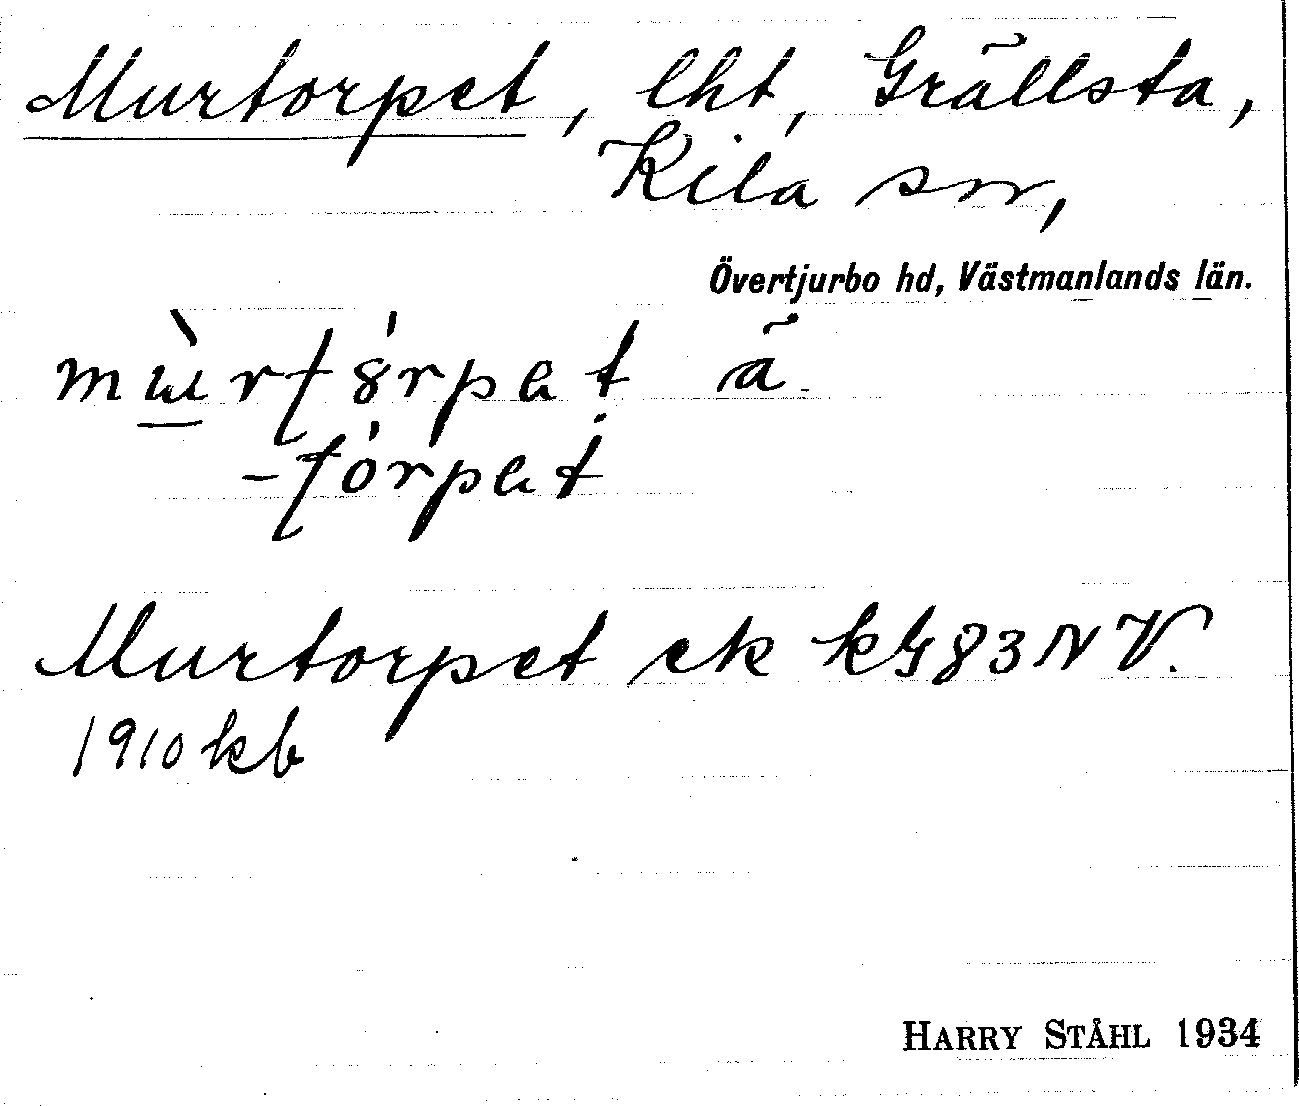 Murtorpet, lht, Grällsta,
Kila sn,
Övertjurbo hd, Västmanlands län.
ä.
Murtorpet ek k G 83 NV.
1910 kb
HARRY STÅHL 1934